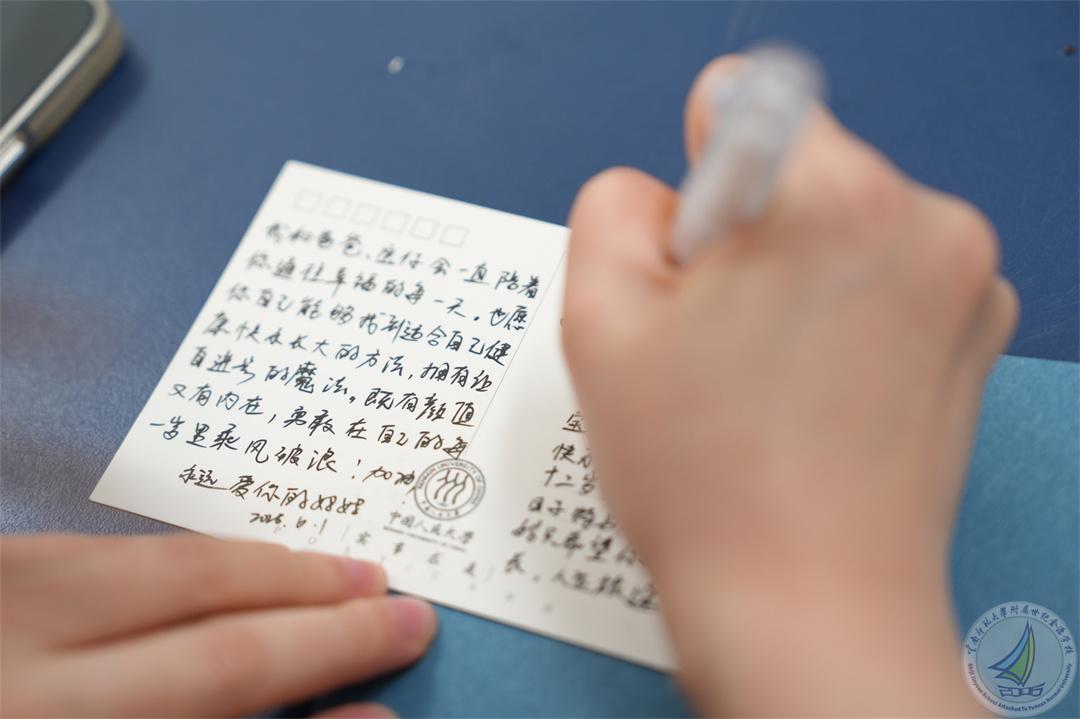 我和爸爸、
会一直陪着
你通往幸福的每一天。也愿
你自己能够找到适合自己健
康快乐长大的方法,拥有
的魔法。既有颜值
又有内在,勇敢在自己的每
一岁里乘风破浪!加油!
永远爱你的妈妈
6.1
RENMIN UNIVERSITY OF CHINA
中国人民大学
RENMIN UNIVERSITY OF CHINA
实事求是
宝
快
十二岁
日子
希望你
长,人生
云南师范大學附属世纪金源学校
Shiji Jinyuan School Attached To Yunnan Normal University
2006